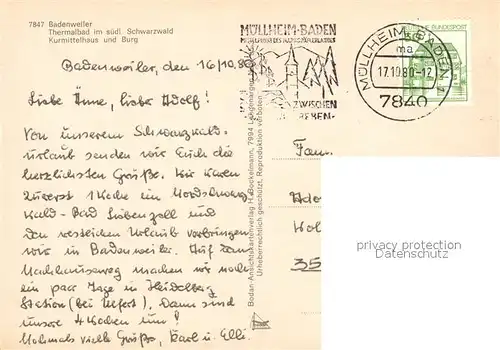 7847 Badenweiler
Thermalbad im südl. Schwarzwald
Kurmittelhaus und Burg
Badenweiler, den 16/10.80
Liebe Änne, lieber Adolf!
Von unserem Schwarzwald-
urlaub senden wir Euch die
herzlichsten Grüße. Wir waren
zuerst 1 Woche im Nordschwarz-
wald-Bad Liebenzell und
den restlichen Urlaub verbringen
wir in Badenweiler. Auf dem
Nachhauseweg machen wir noch
ein paar Tage in Heidelberg
Station (bei Elfert). Dann sind
unsere 4 Wochen um!
Nochmals viele Grüße, Karl u. Elli.
Bodan-Ansichtskartenverlag H. Bockelmann, 7994 Langenargen
Urheberrechtlich geschützt, Reproduktion verboten
MÜLLHEIM-BADEN
ZWISCHEN
REBEN
MÜLLHEIM, BADEN 1
ma
17.10.80-12
7840
DEUTSCHE BUNDESPOST
Fam.
Ado
Hol
35
privacy protection
Datenschutz